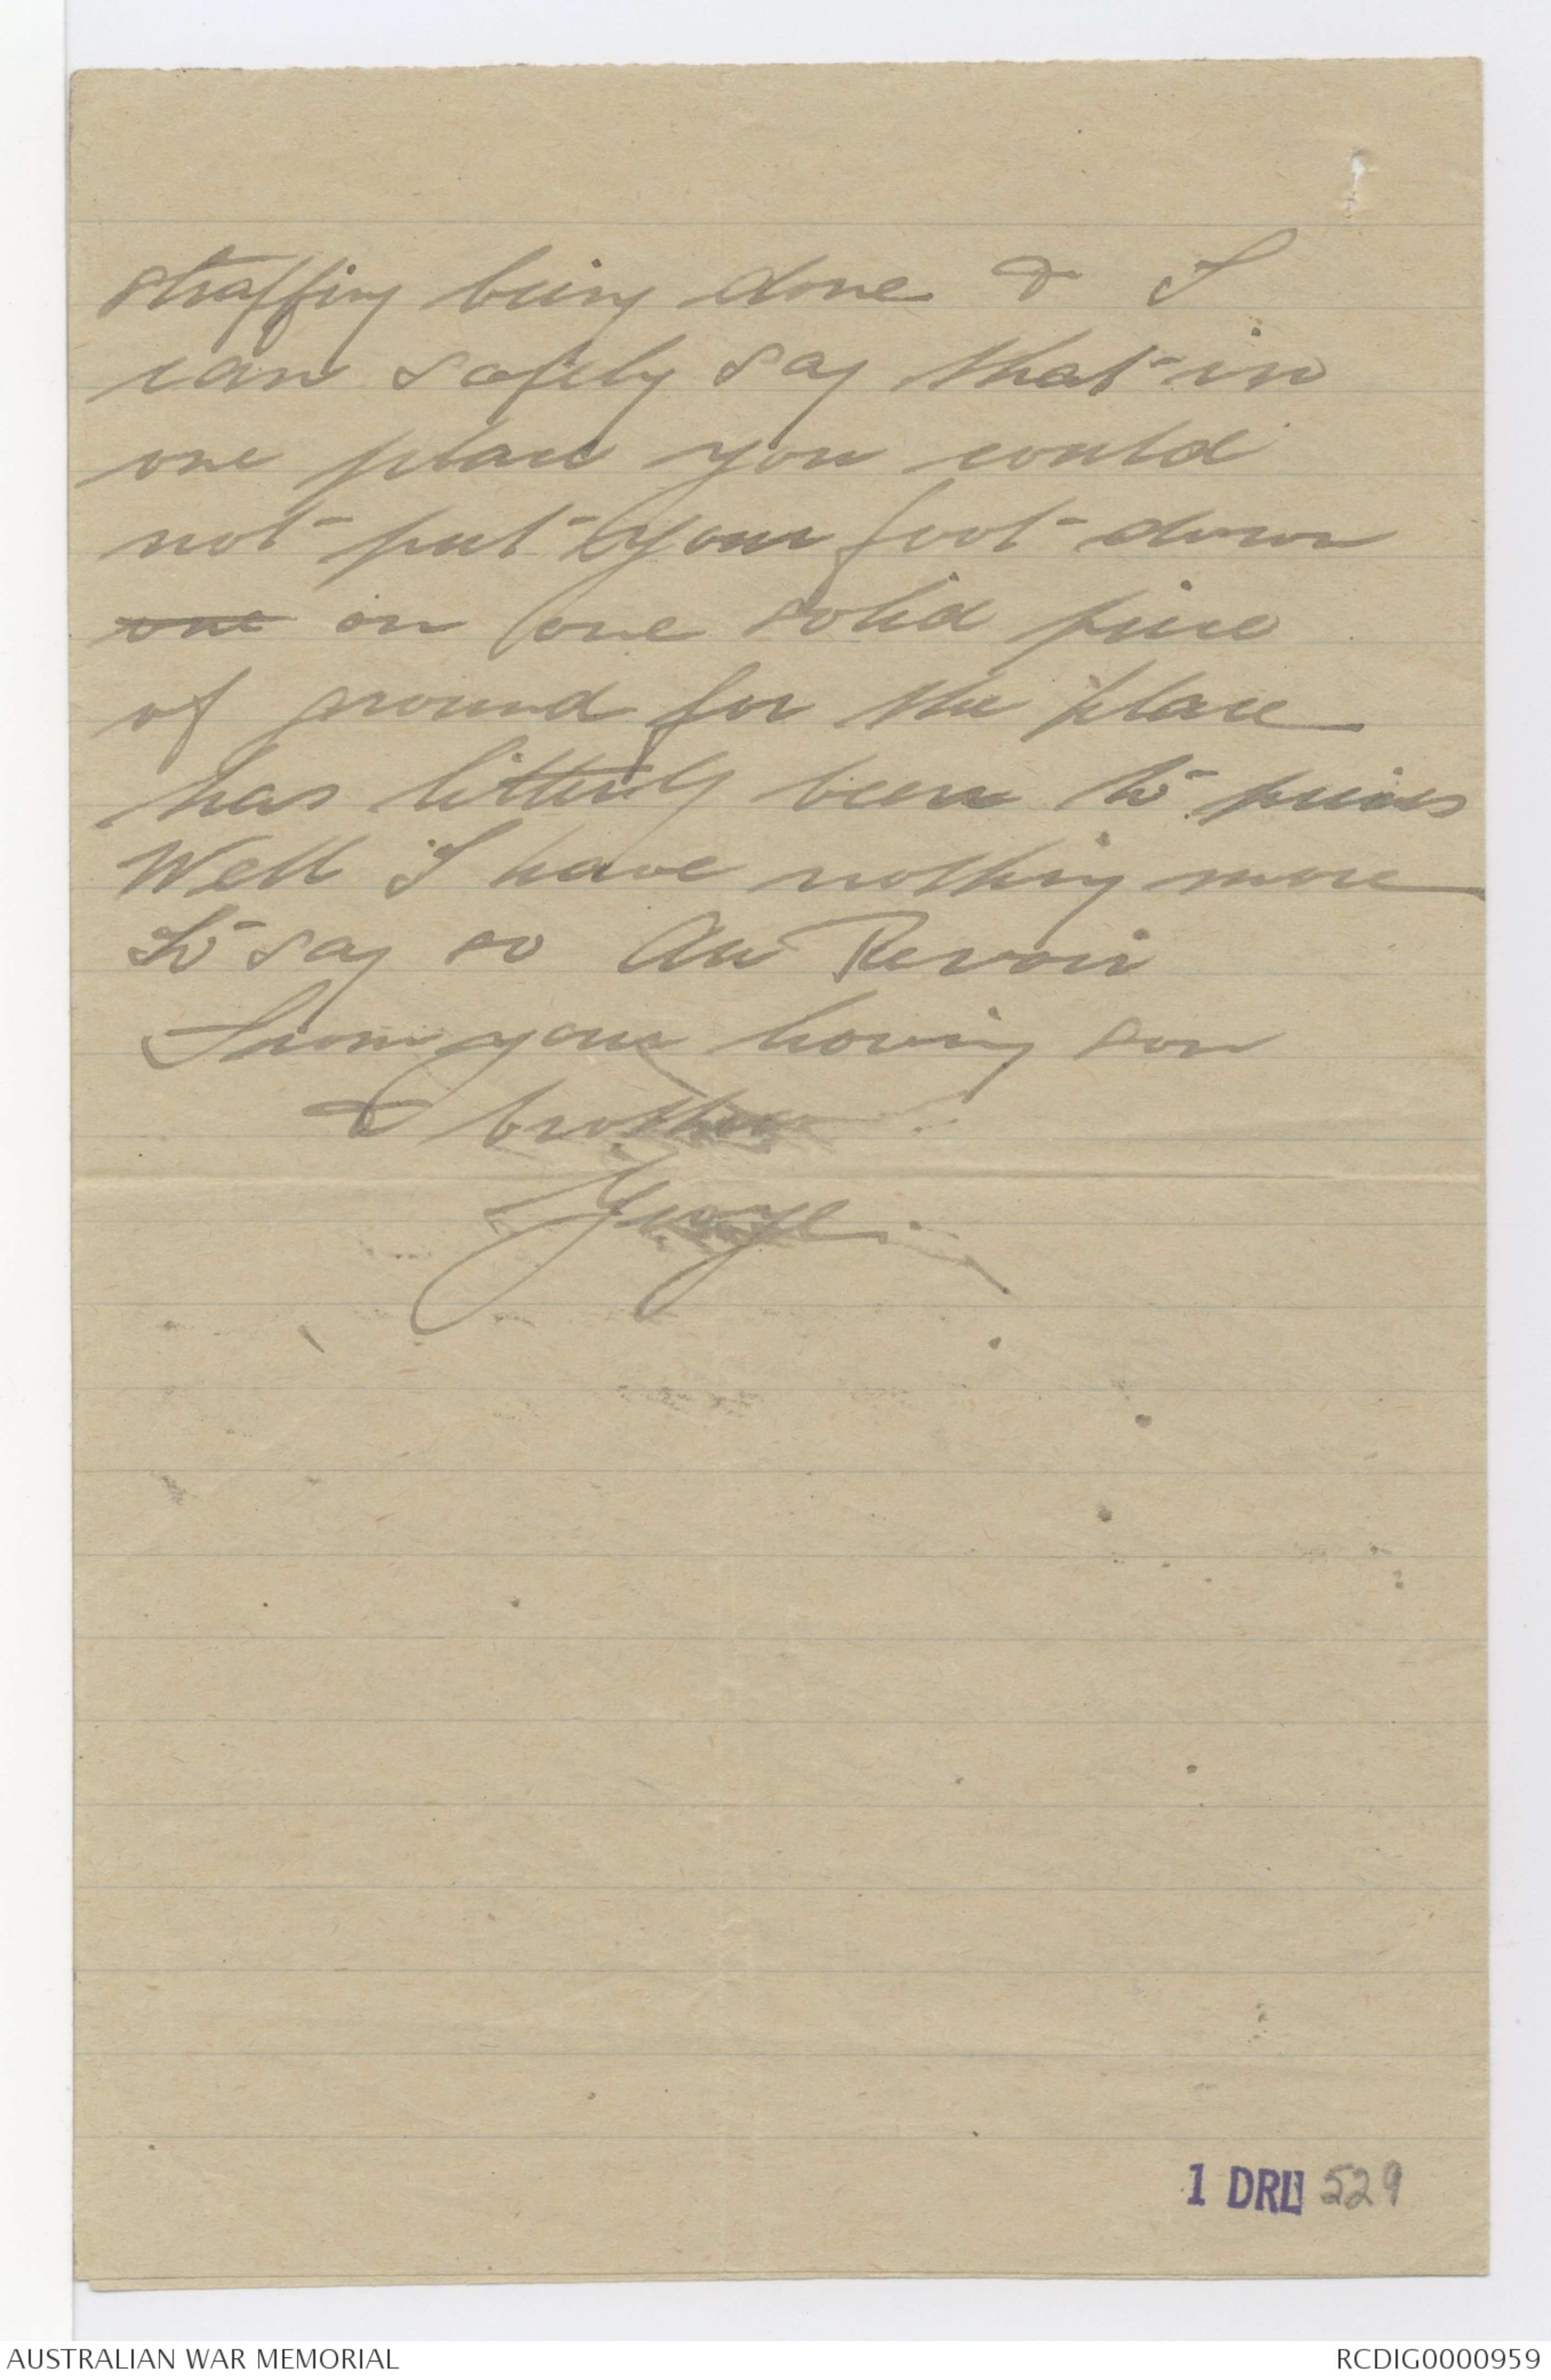 straffing being done & I
can safely say that in
one place you could
not put your foot down
one on one solid piece
of ground for the place
has litterly been to pieces
Well I have nothing more
to say so Au Revoir
From your loving son
& brother
George.
1 DRL 529
AUSTRALIAN WAR MEMORIAL
RCDIG0000959